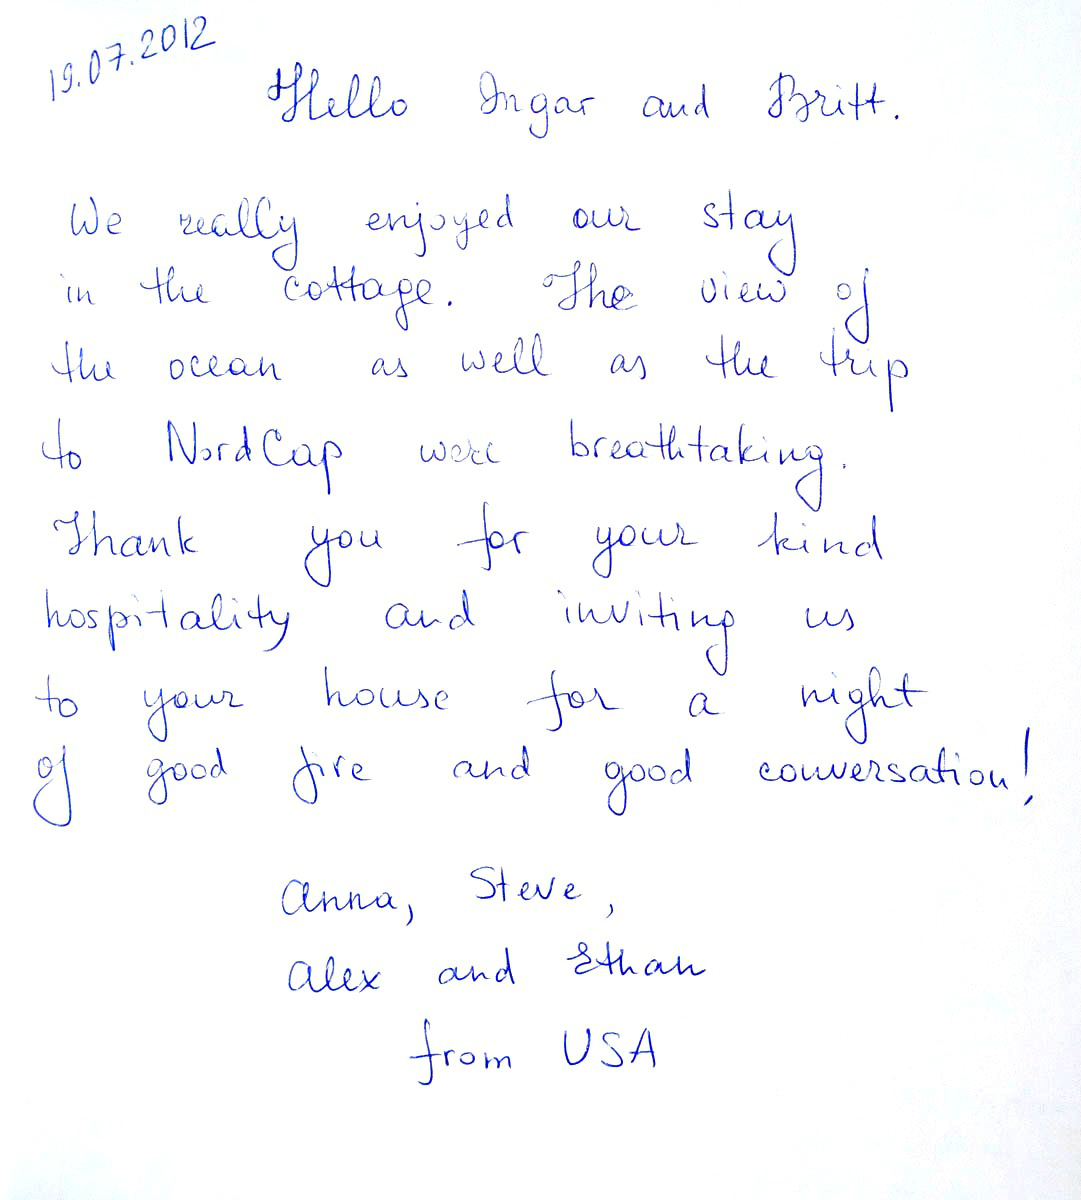 19.07.2012
Hello Ingar and Britt.
We really enjoyed our stay
in the cottage. The view of
the ocean as well as the trip
to NordCap were breathtaking.
Thank you for your kind
hospitality and inviting us
to your house for a night
of good fire and good conversation!
Anna, Steve,
Alex and Ethan
from USA